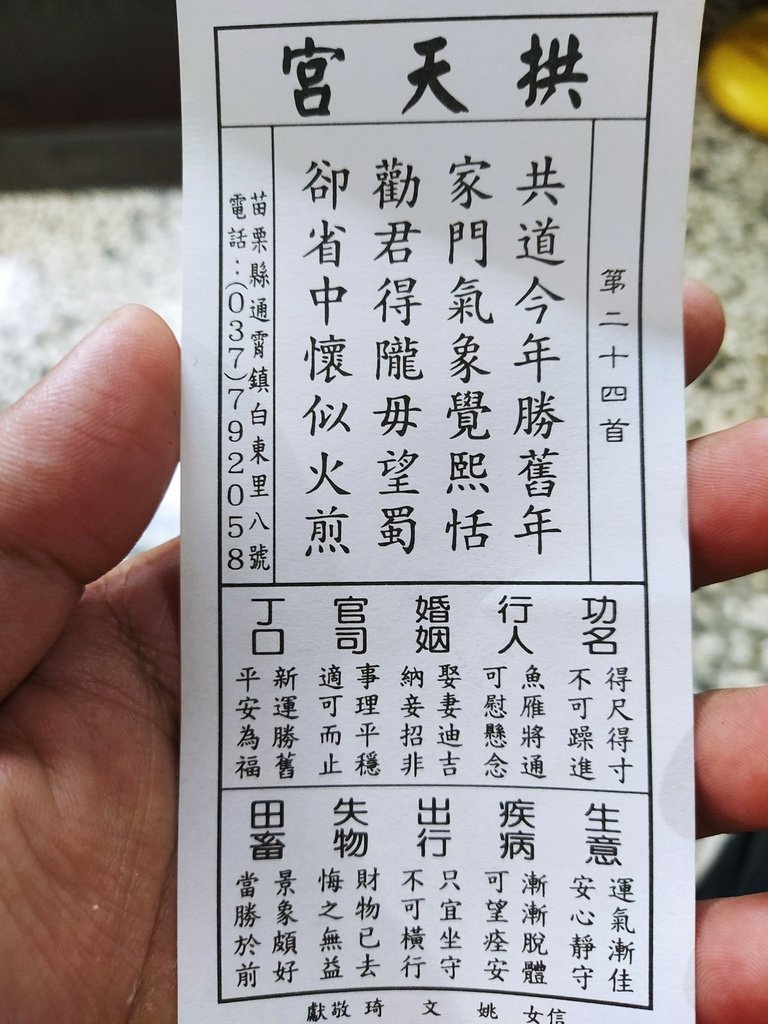 拱天宮
第二十四首
共道今年勝舊年
家門氣象覺熙恬
勸君得隴毋望蜀
卻省中懷似火煎
苗栗縣通霄鎮白東里八號
電話：(037)792058
功名
得尺得寸
不可躁進
行人
魚雁將通
可慰懸念
婚姻
娶妻迪吉
納妾招非
官司
事理平穩
適可而止
丁口
新運勝舊
平安為福
生意
運氣漸佳
安心靜守
疾病
漸漸脫體
可望痊安
出行
只宜坐守
不可橫行
失物
財物已去
悔之無益
田畜
景象頗好
當勝於前
信女 姚 文 琦 敬獻